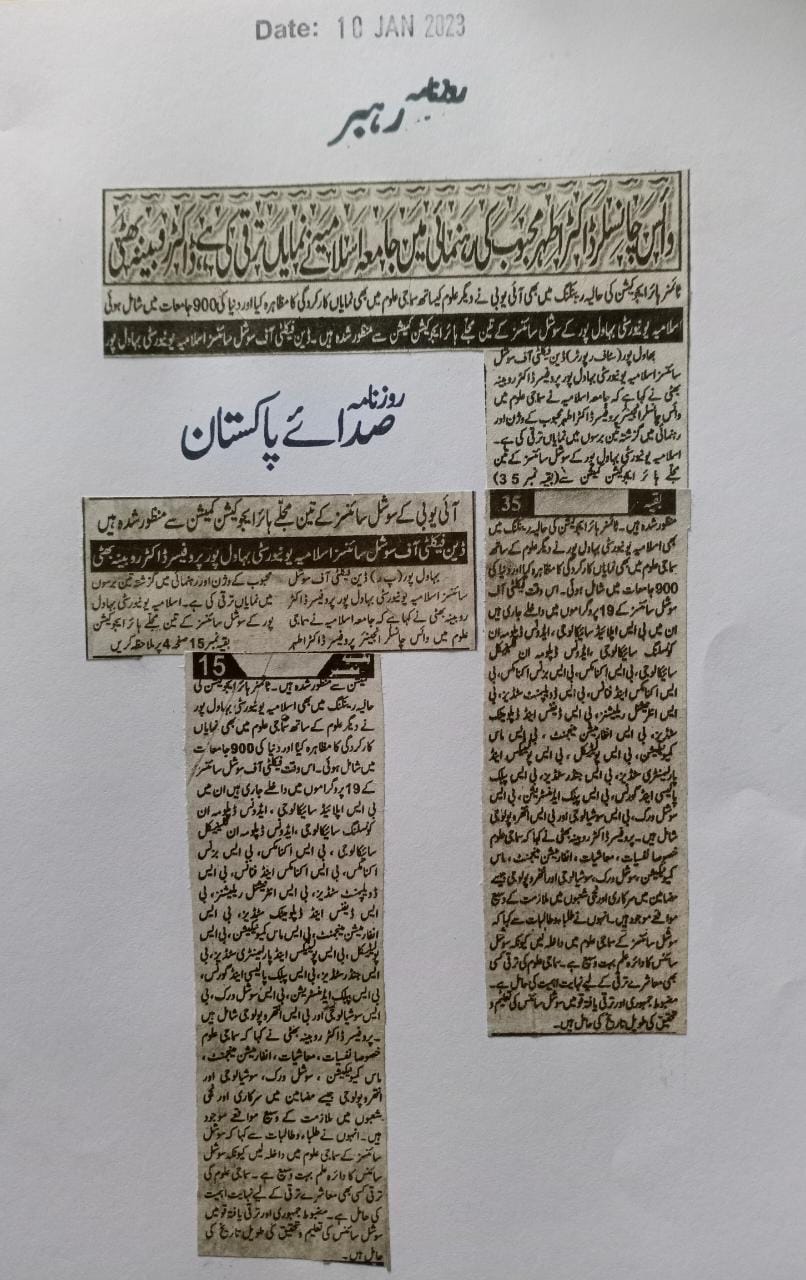 Date: 10 JAN 2023
روزنامہ رہبر
وائس چانسلر ڈاکٹر اطہر محبوب کی رہنمائی میں جامعہ اسلامیہ نے نمایاں ترقی کی ہے، ڈاکٹر روبینہ بھٹی
ٹائمز ہائر ایجوکیشن کی حالیہ رینکنگ میں بھی آئی یو بی نے دیگر علوم کیساتھ سماجی علوم میں بھی نمایاں کارکردگی کا مظاہرہ کیا اور دنیا کی 900 جامعات میں شامل ہوئی
اسلامیہ یونیورسٹی بہاول پور کے سوشل سائنسز کے تین مجلے ہائر ایجوکیشن کمیشن سے منظور شدہ ہیں۔ ڈین فیکلٹی آف سوشل سائنسز اسلامیہ یونیورسٹی بہاول پور
بہاول پور (سٹاف رپورٹر) ڈین فیکلٹی آف سوشل
سائنسز اسلامیہ یونیورسٹی بہاول پور پروفیسر ڈاکٹر روبینہ
بھٹی نے کہا ہے کہ جامعہ اسلامیہ نے سماجی علوم میں
وائس چانسلر انجینئر پروفیسر ڈاکٹر اطہر محبوب کے وژن اور
رہنمائی میں گزشتہ تین برسوں میں نمایاں ترقی کی ہے۔
اسلامیہ یونیورسٹی بہاول پور کے سوشل سائنسز کے تین
مجلے ہائر ایجوکیشن کمیشن سے (بقیہ نمبر 35)
بقیہ 35
منظور شدہ ہیں۔ ٹائمز ہائر ایجوکیشن کی حالیہ رینکنگ میں
بھی اسلامیہ یونیورسٹی بہاول پور نے دیگر علوم کے ساتھ
سماجی علوم میں بھی نمایاں کارکردگی کا مظاہرہ کیا اور دنیا کی
900 جامعات میں شامل ہوئی۔ اس وقت فیکلٹی آف
سوشل سائنسز کے 19 پروگراموں میں داخلے جاری ہیں
ان میں بی ایس اپلائیڈ سائیکالوجی، ایڈوانس ڈپلومہ ان
کونسلنگ سائیکالوجی، ایڈوانس ڈپلومہ ان کلینیکل
سائیکالوجی، بی ایس اکنامکس، بی ایس بزنس اکنامکس، بی
ایس اکنامکس اینڈ فنانس، بی ایس ڈویلپمنٹ سٹڈیز، بی
ایس انٹرنیشنل ریلیشنز، بی ایس ڈیفنس اینڈ ڈپلومیٹک
سٹڈیز، بی ایس انفارمیشن مینجمنٹ، بی ایس ماس
کمیونیکیشن، بی ایس پولیٹیکل، بی ایس پولیٹکس اینڈ
پارلیمنٹری سٹڈیز، بی ایس جنڈر سٹڈیز، بی ایس پبلک
پالیسی اینڈ گورنس، بی ایس پبلک ایڈمنسٹریشن، بی ایس
سوشل ورک، بی ایس سوشیالوجی اور بی ایس انتھروپولوجی
شامل ہیں۔ پروفیسر ڈاکٹر روبینہ بھٹی نے کہا کہ سماجی علوم
خصوصا نفسیات، معاشیات، انفارمیشن مینجمنٹ، ماس
کمیونیکیشن، سوشل ورک، سوشیالوجی اور انتھروپولوجی جیسے
مضامین میں سرکاری اور نجی شعبوں میں ملازمت کے وسیع
مواقعے موجود ہیں۔ انہوں نے طلباء و طالبات سے کہا کہ
سوشل سائنسز کے سماجی علوم میں داخلہ لیں کیونکہ سوشل
سائنس کا دائرہ علم بہت وسیع ہے۔ سماجی علوم کی ترقی کسی
بھی معاشرے ترقی کے لیے نہایت اہمیت کی حامل ہے۔
مضبوط جمہوری اور ترقی یافتہ قومیں سوشل سائنس کی تعلیم و
تحقیق کی طویل تاریخ کی حامل ہیں۔
روزنامہ صدائے پاکستان
آئی یو بی کے سوشل سائنسز کے تین مجلے ہائر ایجوکیشن کمیشن سے منظور شدہ ہیں
ڈین فیکلٹی آف سوشل سائنسز اسلامیہ یونیورسٹی بہاول پور پروفیسر ڈاکٹر روبینہ بھٹی
بہاول پور (پ ر) ڈین فیکلٹی آف سوشل
سائنسز اسلامیہ یونیورسٹی بہاول پور پروفیسر ڈاکٹر
روبینہ بھٹی نے کہا ہے کہ جامعہ اسلامیہ نے سماجی
علوم میں وائس چانسلر انجینئر پروفیسر ڈاکٹر اطہر
محبوب کے وژن اور رہنمائی میں گزشتہ تین برسوں
میں نمایاں ترقی کی ہے۔ اسلامیہ یونیورسٹی بہاول
پور کے سوشل سائنسز کے تین مجلے ہائر ایجوکیشن
بقیہ نمبر 15 صفحہ 4 پر ملاحظہ کریں
بقیہ نمبر 15
کمیشن سے منظور شدہ ہیں۔ ٹائمز ہائر ایجوکیشن کی
حالیہ رینکنگ میں بھی اسلامیہ یونیورسٹی بہاول پور
نے دیگر علوم کے ساتھ سماجی علوم میں بھی نمایاں
کارکردگی کا مظاہرہ کیا اور دنیا کی 900 جامعات
میں شامل ہوئی۔ اس وقت فیکلٹی آف سوشل سائنسز
کے 19 پروگراموں میں داخلے جاری ہیں ان میں
بی ایس اپلائیڈ سائیکالوجی، ایڈوانس ڈپلومہ ان
کونسلنگ سائیکالوجی، ایڈوانس ڈپلومہ ان کلینیکل
سائیکالوجی، بی ایس اکنامکس، بی ایس بزنس
اکنامکس، بی ایس اکنامکس اینڈ فنانس، بی ایس
ڈویلپمنٹ سٹڈیز، بی ایس انٹرنیشنل ریلیشنز، بی
ایس ڈیفنس اینڈ ڈپلومیٹک سٹڈیز، بی ایس
انفارمیشن مینجمنٹ، بی ایس ماس کمیونیکیشن، بی ایس
پولیٹیکل، بی ایس پولیٹکس اینڈ پارلیمنٹری سٹڈیز، بی
ایس جنڈر سٹڈیز، بی ایس پبلک پالیسی اینڈ گورنس،
بی ایس پبلک ایڈمنسٹریشن، بی ایس سوشل ورک، بی
ایس سوشیالوجی اور بی ایس انتھروپولوجی شامل ہیں
۔ پروفیسر ڈاکٹر روبینہ بھٹی نے کہا کہ سماجی علوم
خصوصا نفسیات، معاشیات، انفارمیشن مینجمنٹ،
ماس کمیونیکیشن، سوشل ورک، سوشیالوجی اور
انتھروپولوجی جیسے مضامین میں سرکاری اور نجی
شعبوں میں ملازمت کے وسیع مواقعے موجود
ہیں۔ انہوں نے طلباء و طالبات سے کہا کہ سوشل
سائنسز کے سماجی علوم میں داخلہ لیں کیونکہ سوشل
سائنس کا دائرہ علم بہت وسیع ہے۔ سماجی علوم کی
ترقی کسی بھی معاشرے ترقی کے لیے نہایت اہمیت
کی حامل ہے۔ مضبوط جمہوری اور ترقی یافتہ قومیں
سوشل سائنس کی تعلیم و تحقیق کی طویل تاریخ کی
حامل ہیں۔